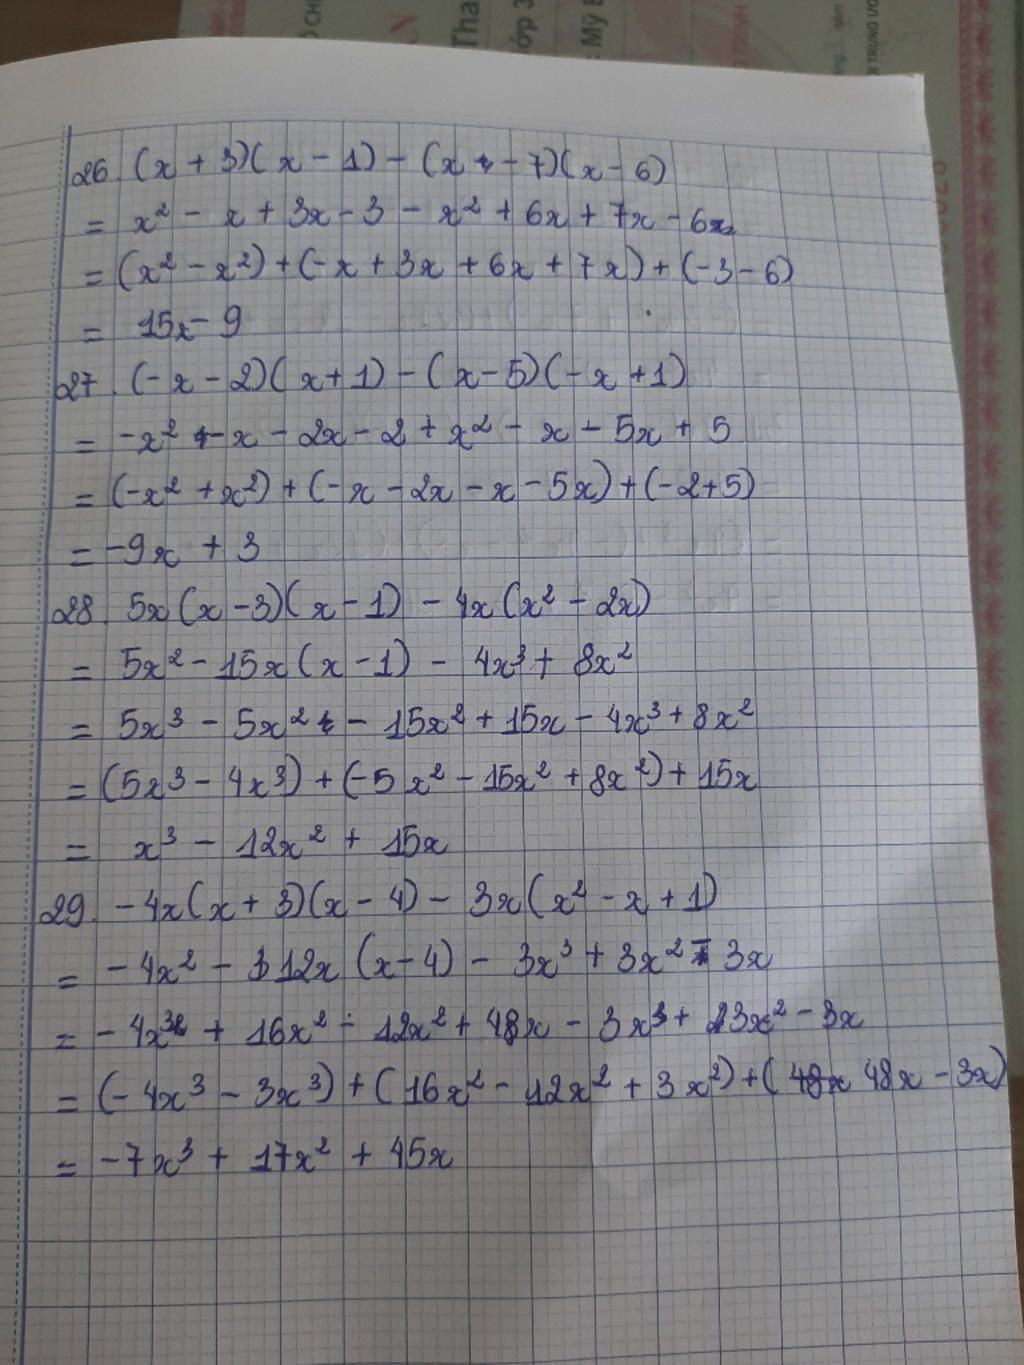 Tha
ớp 3
Mỹ
26. (x + 3)(x - 1) - (x - 7)(x - 6)
= x² - x + 3x - 3 - x² + 6x + 7x - 6
= (x² - x²) + (-x + 3x + 6x + 7x) + (-3 - 6)
= 15x - 9
27. (-x - 2)(x + 1) - (x - 5)(-x + 1)
= -x² - x - 2x - 2 + x² - x - 5x + 5
= (-x² + x²) + (-x - 2x - x - 5x) + (-2 + 5)
= -9x + 3
28. 5x(x - 3)(x - 1) - 4x(x² - 2x)
= 5x² - 15x(x - 1) - 4x³ + 8x²
= 5x³ - 5x² - 15x² + 15x - 4x³ + 8x²
= (5x³ - 4x³) + (-5x² - 15x² + 8x²) + 15x
= x³ - 12x² + 15x
29. -4x(x + 3)(x - 4) - 3x(x² - x + 1)
= -4x² - 12x(x - 4) - 3x³ + 3x² - 3x
= -4x³ + 16x² - 12x² + 48x - 3x³ + 3x² - 3x
= (-4x³ - 3x³) + (16x² - 12x² + 3x²) + (48x 48x - 3x)
= -7x³ + 17x² + 45x